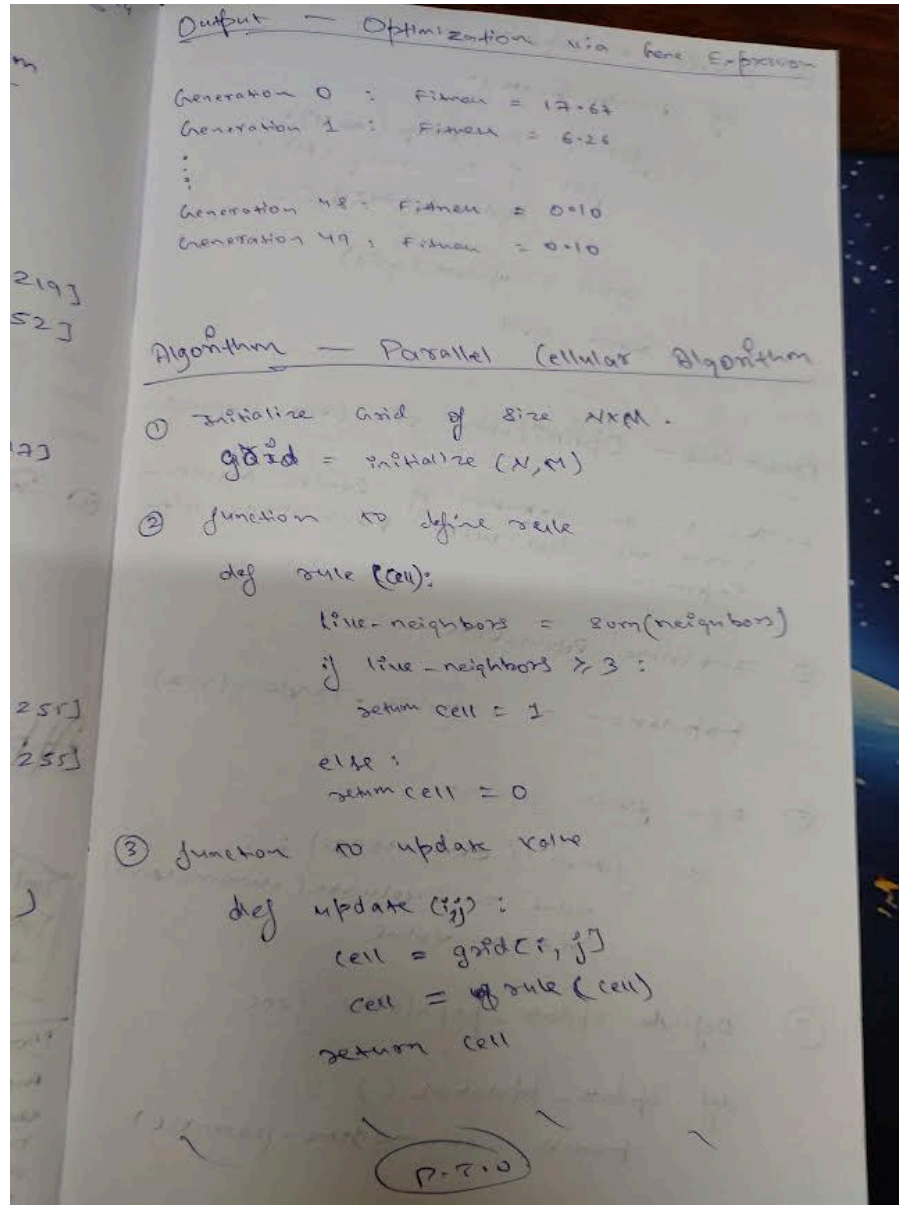 Output — Optimization via Gene Expression
Generation 0 : Fitness = 17.67
Generation 1 : Fitness = 6.26
Generation 48 : Fitness = 0.10
Generation 49 : Fitness = 0.10
219]
52]
Algorithm — Parallel Cellular Algorithm
① Initialize Grid of size N×M.
grid = initialize (N, M)
17]
② function to define rule
def rule (cell):
live-neighbors = sum(neighbors)
if live-neighbors ≥ 3 :
return cell = 1
255]
255]
else :
return cell = 0
③ function to update value
def update (i,j) :
cell = grid[i, j]
cell = rule (cell)
return cell
P.T.O